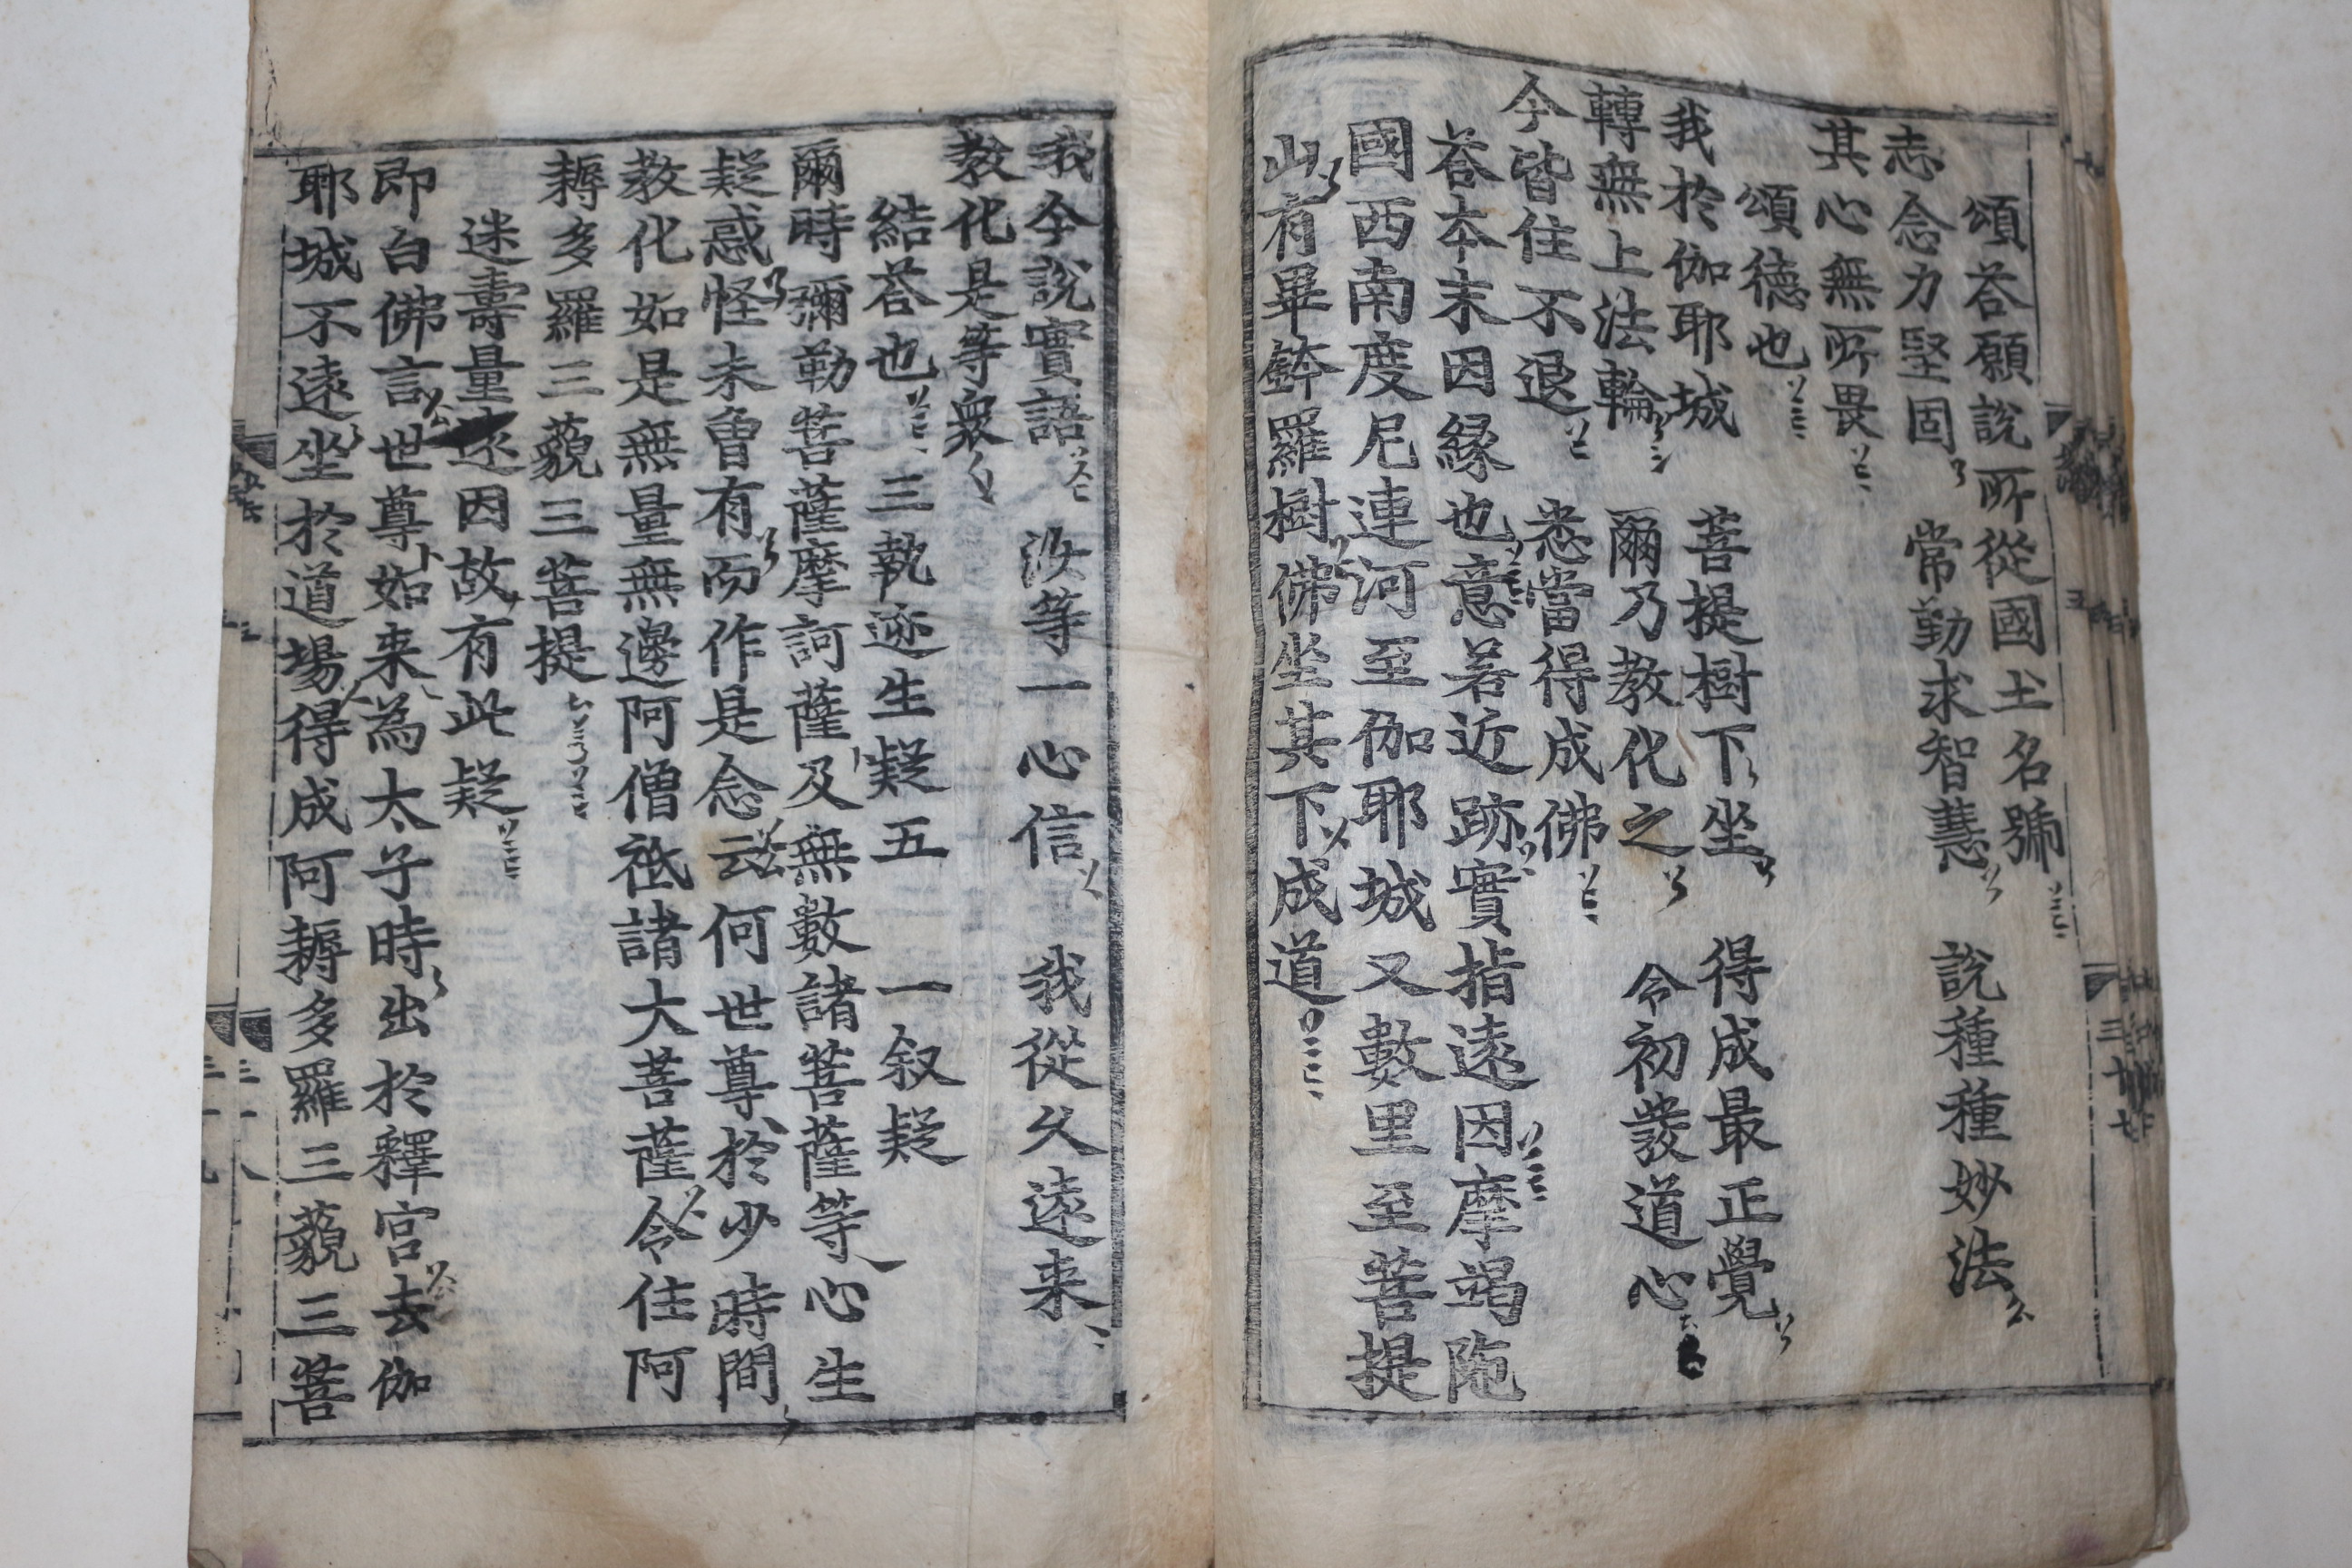 頌荅願說所從國土名號
志念力堅固 常勤求智慧 說種種妙法
其心無所畏
頌德也
我於伽耶城 菩提樹下坐 得成最正覺
轉無上法輪 爾乃教化之 令初發道心
今皆住不退 悉當得成佛
荅本末因緣也意若近跡實指遠因摩竭陁
國西南度尼連河至伽耶城又數里至菩提
山有畢鉢羅樹佛坐其下成道
我今說實語 汝等一心信 我從久遠来
教化是等衆
結荅也 三執迹生疑五 一叙疑
爾時彌勒菩薩摩訶薩及無數諸菩薩等心生
疑惑怪未曾有而作是念云何世尊於少時間
教化如是無量無邊阿僧祇諸大菩薩令住阿
耨多羅三藐三菩提
迷壽量逐因故有此疑
即白佛言世尊如来為太子時出於釋宮去伽
耶城不遠坐於道場得成阿耨多羅三藐三菩